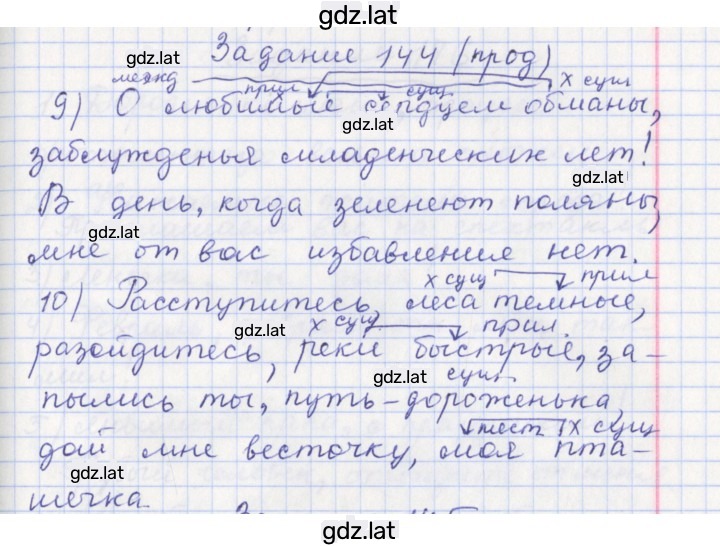 gdz.lat
Задание 144 (прод)
gdz.lat
межд прил сущ х сущ
9) О любимые сердцем обманы,
gdz.lat
заблужденья младенческих лет!
gdz.lat
В день, когда зеленеют поляны,
gdz.lat
мне от вас избавления нет.
х сущ прил
10) Расступитесь, леса темные,
gdz.lat х сущ прил.
разойдитесь, реки быстрые, за-
gdz.lat сущ.
пылись ты, путь-дороженька,
мест х сущ
дай мне весточку, моя пта-
gdz.lat
шечка.
gdz.lat